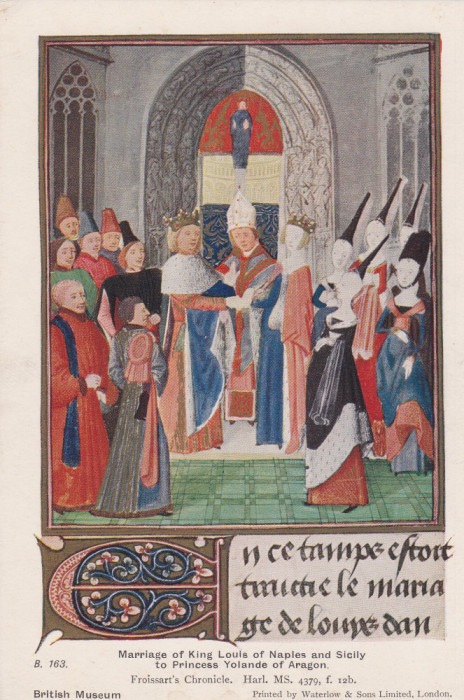 En ce tamps estoit
traictie le maria
ge de loups dan
Marriage of King Louis of Naples and Sicily
B. 163. to Princess Yolande of Aragon.
Froissart's Chronicle. Harl. MS. 4379, f. 12b.
British Museum Printed by Waterlow & Sons Limited, London.